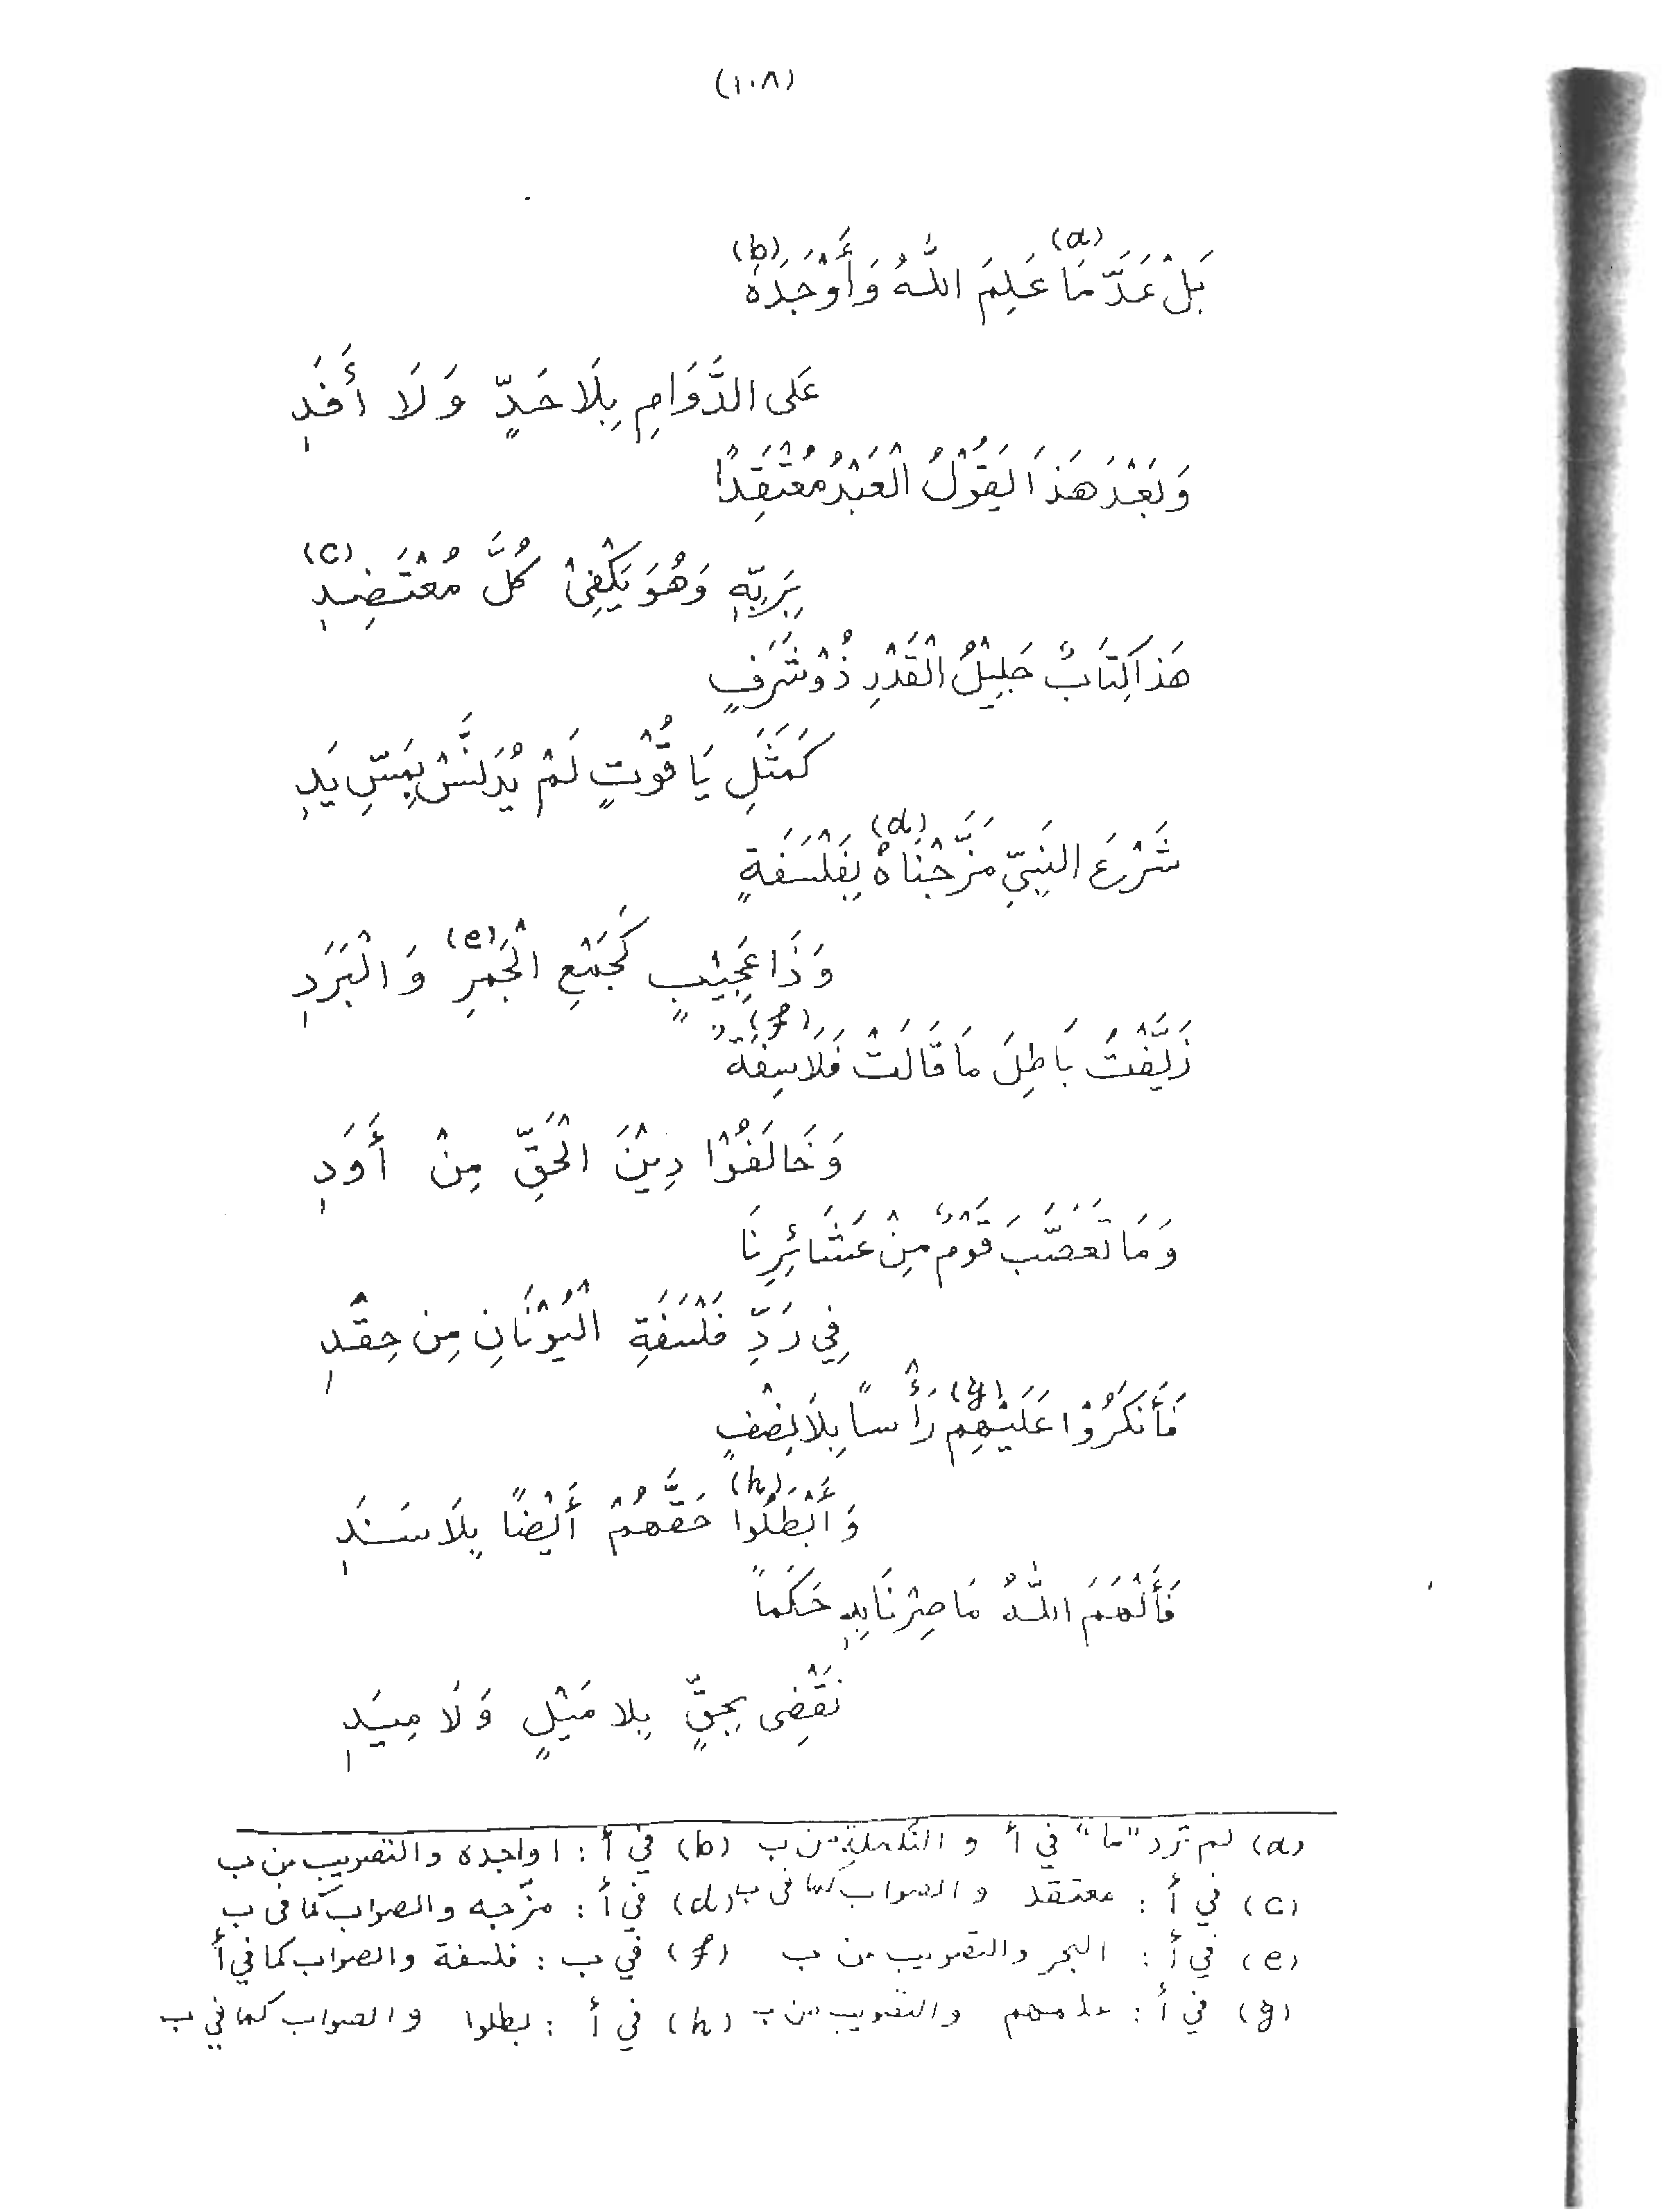 (١٠٨)
بَلْ عَدَّ مَا (a) عَلِمَ اللّٰهُ وَأَوْجَدَهُ (b)
عَلى الدَّوَامِ بِلَا حَدٍّ وَلَا أَفَدِ
وَبَعْدَ هَذَا يَقُوْلُ الْعَبْدُ مُعْتَقِدًا
بِرَبِّهِ وَهُوَ يَكْفِىْ كُلَّ مُعْتَضِدِ (c)
هَذَا كِتَابٌ جَلِيْلُ الْقَدْرِ ذُوْ شَرَفٍ
كَمَثَلِ يَاقُوْتٍ لَمْ يُدَنَّسْ بِمَسِّ يَدِ
شَرْعَ النَبِيِّ مَزَّجْنَاهُ (d) بِفَلْسَفَةٍ
وَذَا عَجِيْبٍ كَجَمْعِ الْجَمْرِ (e) وَالْبَرَدِ
زَيَّفْتُ بَاطِلَ مَا قَالَتْ فَلَاسِفَةٌ (f)
وَخَالَفُوْا دِيْنَ الْحَقِّ مِنْ أَوَدِ
وَمَا تَعَصَّبَ قَوْمٌ مِنْ عَشَائِرِنَا
فِي رَدِّ فَلْسَفَةِ الْيُوْنَانِ مِن حِقْدِ
فَأَنكَرُوْا عَلَيْهِم (g) رَأْساً بِلَا نِصْفٍ
وَأَبْطَلُوا (h) حَقَّهُمْ أَيْضًا بِلَا سَنَدِ
فَأَلْهَمَ اللّٰهُ مَا صِرْنَا بِهِ حَكَماً
نَقْضِى بِحقٍّ بِلا مَيْلٍ وَلَا مِيَدِ
(a) لم ترد "ما" في أ والتكملة من ب (b) في أ : اواجده والتصويب من ب
(c) في أ : معتقد والصواب كما فى ب (d) في أ : مزّجه والصواب كما فى ب
(e) في أ : البحر والتصويب من ب (f) في ب : فلسفة والصواب كما في أ
(g) في أ : والتصويب من ب (h) في أ : بطلوا والصواب كما في ب